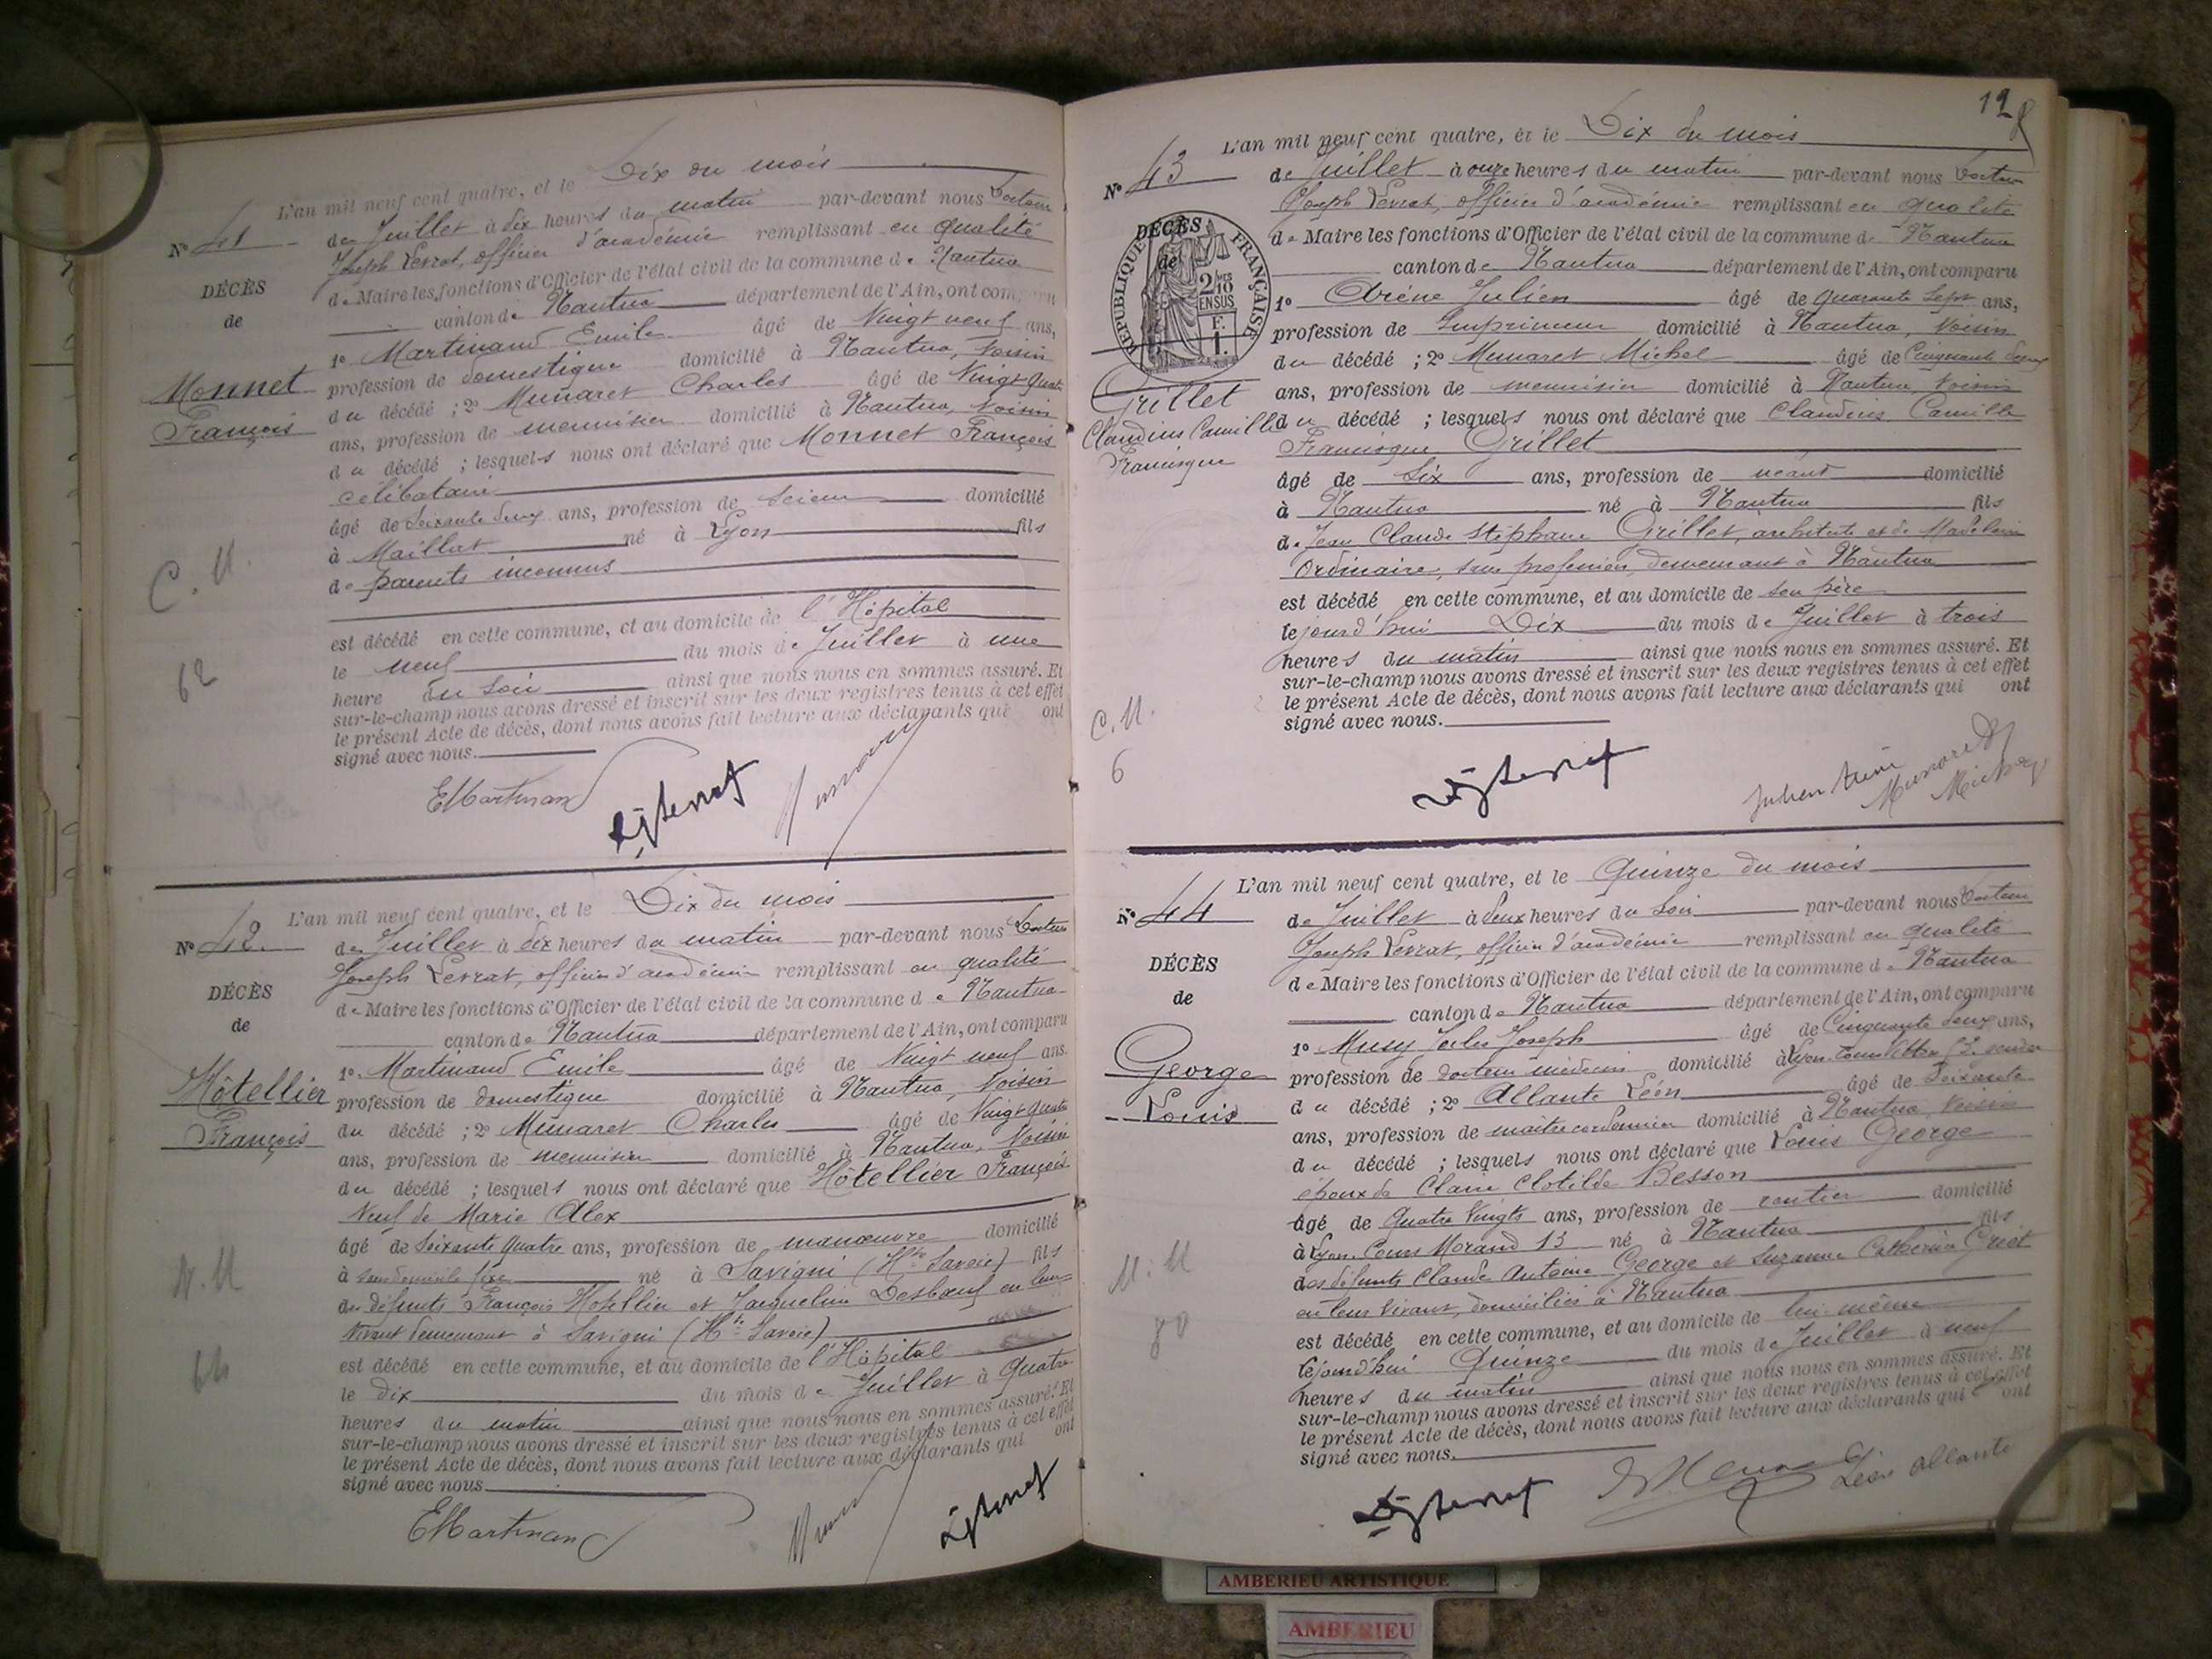 L'an mil neuf cent quatre, et le Dix du mois
N° 41
de Juillet à dix heures du matin par-devant nous Docteur
Joseph Levrat, officier d'académie remplissant en qualité
DÉCÈS
de Maire les fonctions d'Officier de l'état civil de la commune de Nantua
de
canton de Nantua département de l'Ain, ont comparu
1° Martinand Emile âgé de Vingt neuf ans,
Monnet
profession de domestique domicilié à Nantua, voisin
François
du décédé ; 2° Munaret Charles âgé de Vingt quatre
ans, profession de menuisier domicilié à Nantua, voisin
du décédé ; lesquels nous ont déclaré que Monnet François
célibataire
âgé de Soixante deux ans, profession de scieur domicilié
à Maillat né à Lyon fils
C. N.
de parents inconnus
est décédé en cette commune, et au domicile de l'Hôpital
le neuf du mois de Juillet à une
62
heure du soir ainsi que nous nous en sommes assuré. Et
sur-le-champ nous avons dressé et inscrit sur les deux registres tenus à cet effet
le présent Acte de décès, dont nous avons fait lecture aux déclarants qui ont
signé avec nous.
EMartinand
L'an mil neuf cent quatre, et le Dix du mois
N° 42
de Juillet à dix heures du matin par-devant nous Docteur
Joseph Levrat, officier d'académie remplissant en qualité
DÉCÈS
de Maire les fonctions d'Officier de l'état civil de la commune de Nantua
de
canton de Nantua département de l'Ain, ont comparu
1° Martinand Emile âgé de Vingt neuf ans.
Hôtellier
profession de domestique domicilié à Nantua, voisin
François
du décédé ; 2° Munaret Charles âgé de Vingt quatre
ans, profession de menuisier domicilié à Nantua, Voisin
du décédé ; lesquels nous ont déclaré que Hôtellier François
Veuf de Marie Alex
âgé de Soixante quatre ans, profession de manœuvre domicilié
à sans domicile fixe né à Savigni (Hte Savoie) fils
des défunts François Hotellier et Jacqueline Desbœuf en leur
vivant demeurant à Savigni (Hte Savoie)
est décédé en cette commune, et au domicile de l'Hôpital
64
le dix du mois de Juillet à quatre
heures du matin ainsi que nous nous en sommes assuré. Et
sur-le-champ nous avons dressé et inscrit sur les deux registres tenus à cet effet
le présent Acte de décès, dont nous avons fait lecture aux déclarants qui ont
signé avec nous
EMartinand
128
L'an mil neuf cent quatre, et le Dix du mois
N° 43
de Juillet à onze heures du matin par-devant nous Docteur
Joseph Levrat, officier d'académie remplissant en qualité
DÉCÈS
de
RÉPUBLIQUE FRANÇAISE
2/10 EN SUS
de Maire les fonctions d'Officier de l'état civil de la commune de Nantua
canton de Nantua département de l'Ain, ont comparu
1° Arène Julien âgé de quarante sept ans,
profession de Imprimeur domicilié à Nantua, voisin
du décédé ; 2° Munaret Michel âgé de Cinquante deux
Grillet
ans, profession de menuisier domicilié à Nantua, voisin
Claudius Camille
du décédé ; lesquels nous ont déclaré que Claudius Camille
Francisque
Francisque Grillet
âgé de Six ans, profession de néant domicilié
à Nantua né à Nantua fils
de Jean Claude Stéphane Grillet, architecte et de Madeleine
Ordinaire, sans profession, demeurant à Nantua
est décédé en cette commune, et au domicile de son père
le jourd'hui Dix du mois de Juillet à trois
heures du matin ainsi que nous nous en sommes assuré. Et
sur-le-champ nous avons dressé et inscrit sur les deux registres tenus à cet effet
le présent Acte de décès, dont nous avons fait lecture aux déclarants qui ont
C. N.
signé avec nous.
6
Julien Arène
Munaret
Michel
L'an mil neuf cent quatre, et le Quinze du mois
N° 44
de Juillet à deux heures du soir par-devant nous Docteur
Joseph Levrat, officier d'académie remplissant en qualité
DÉCÈS
de Maire les fonctions d'Officier de l'état civil de la commune de Nantua
de
canton de Nantua département de l'Ain, ont comparu
1° Musy Jules Joseph âgé de Cinquante deux ans,
George
profession de docteur médecin domicilié à Lyon
Louis
du décédé ; 2° Allante Léon âgé de Soixante
ans, profession de maître cordonnier domicilié à Nantua, voisin
du décédé ; lesquels nous ont déclaré que Louis George
époux de Claire Clotilde Besson
âgé de Quatre Vingts ans, profession de rentier domicilié
à Lyon, Cours Morand 13 né à Nantua fils
M. N
des défunts Claude Antoine George et Suzanne Catherine Criet
en leur vivant, domiciliés à Nantua
80
est décédé en cette commune, et au domicile de lui-même
le jourd'hui Quinze du mois de Juillet à neuf
heures du matin ainsi que nous nous en sommes assuré. Et
sur-le-champ nous avons dressé et inscrit sur les deux registres tenus à cet effet
le présent Acte de décès, dont nous avons fait lecture aux déclarants qui ont
signé avec nous.
Léon Allante
AMBERIEU ARTISTIQUE
AMBERIEU